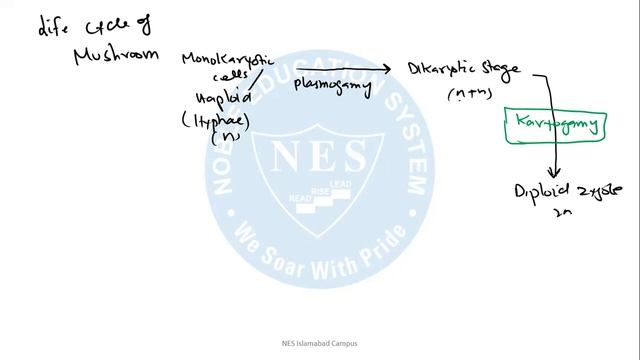 Life cycle of
Mushroom
Monokaryotic
cells
Haploid
(Hyphae)
(n)
Plasmogamy
Dikaryotic Stage
(n+n)
Karyogamy
Diploid zygote
2n
NOBEL EDUCATION SYSTEM
NES
READ RISE LEAD
• We Soar With Pride •
NES Islamabad Campus